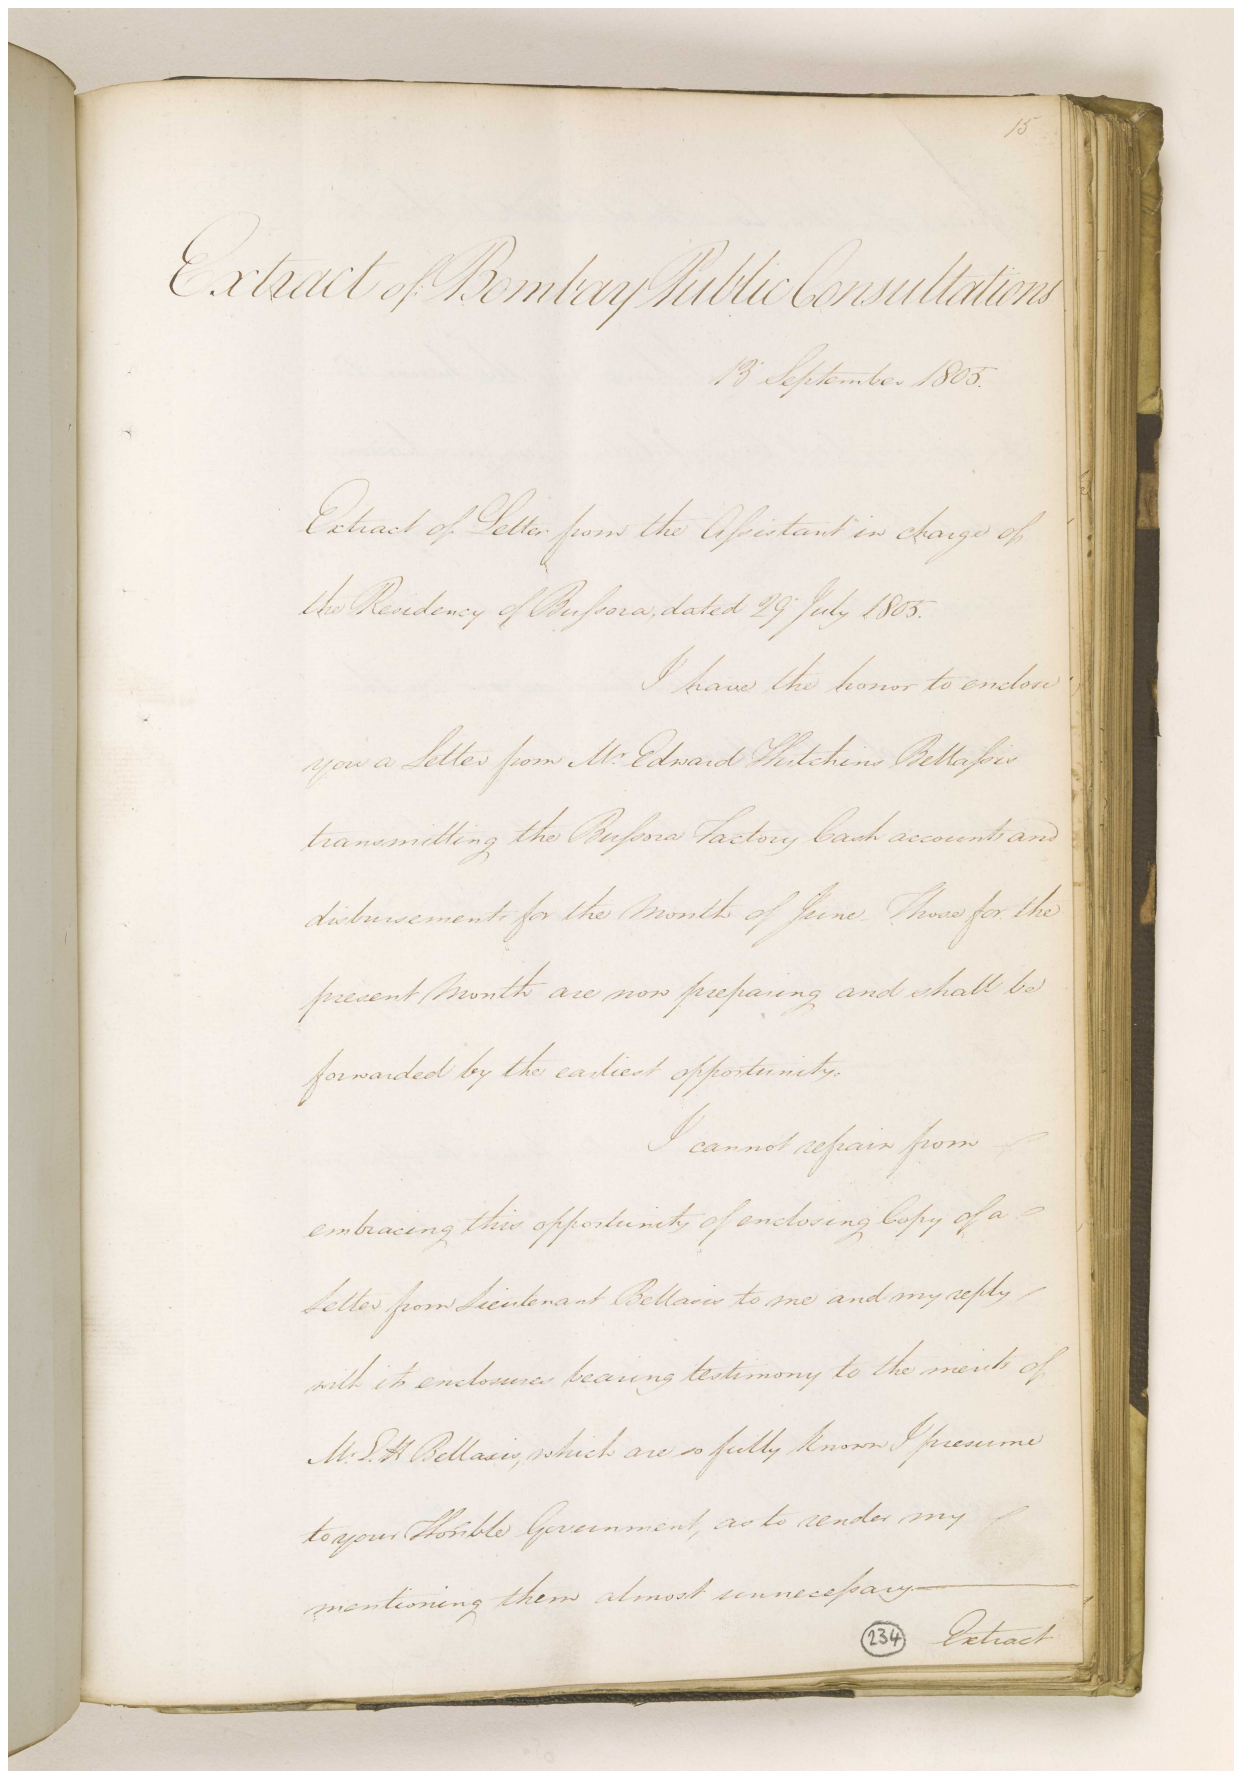 15
Extract of Bombay Public Consultations
13 September 1805.
Extract of Letter from the Assistant in charge of
the Residency of Bussora, dated 29 July 1805.
I have the honor to enclose
you a Letter from Mr. Edward Hutchins Bellassis
transmitting the Bussora Factory Cash accounts and
disbursements for the Month of June. Those for the
present Month are now preparing and shall be
forwarded by the earliest opportunity.
I cannot refrain from
embracing this opportunity of enclosing Copy of a
Letter from Lieutenant Bellasis to me and my reply
with its enclosures bearing testimony to the merits of
Mr. E. H Bellasis, which are so fully known I presume
to your Honble Government, as to render my
mentioning them almost unnecessary
234 Extract